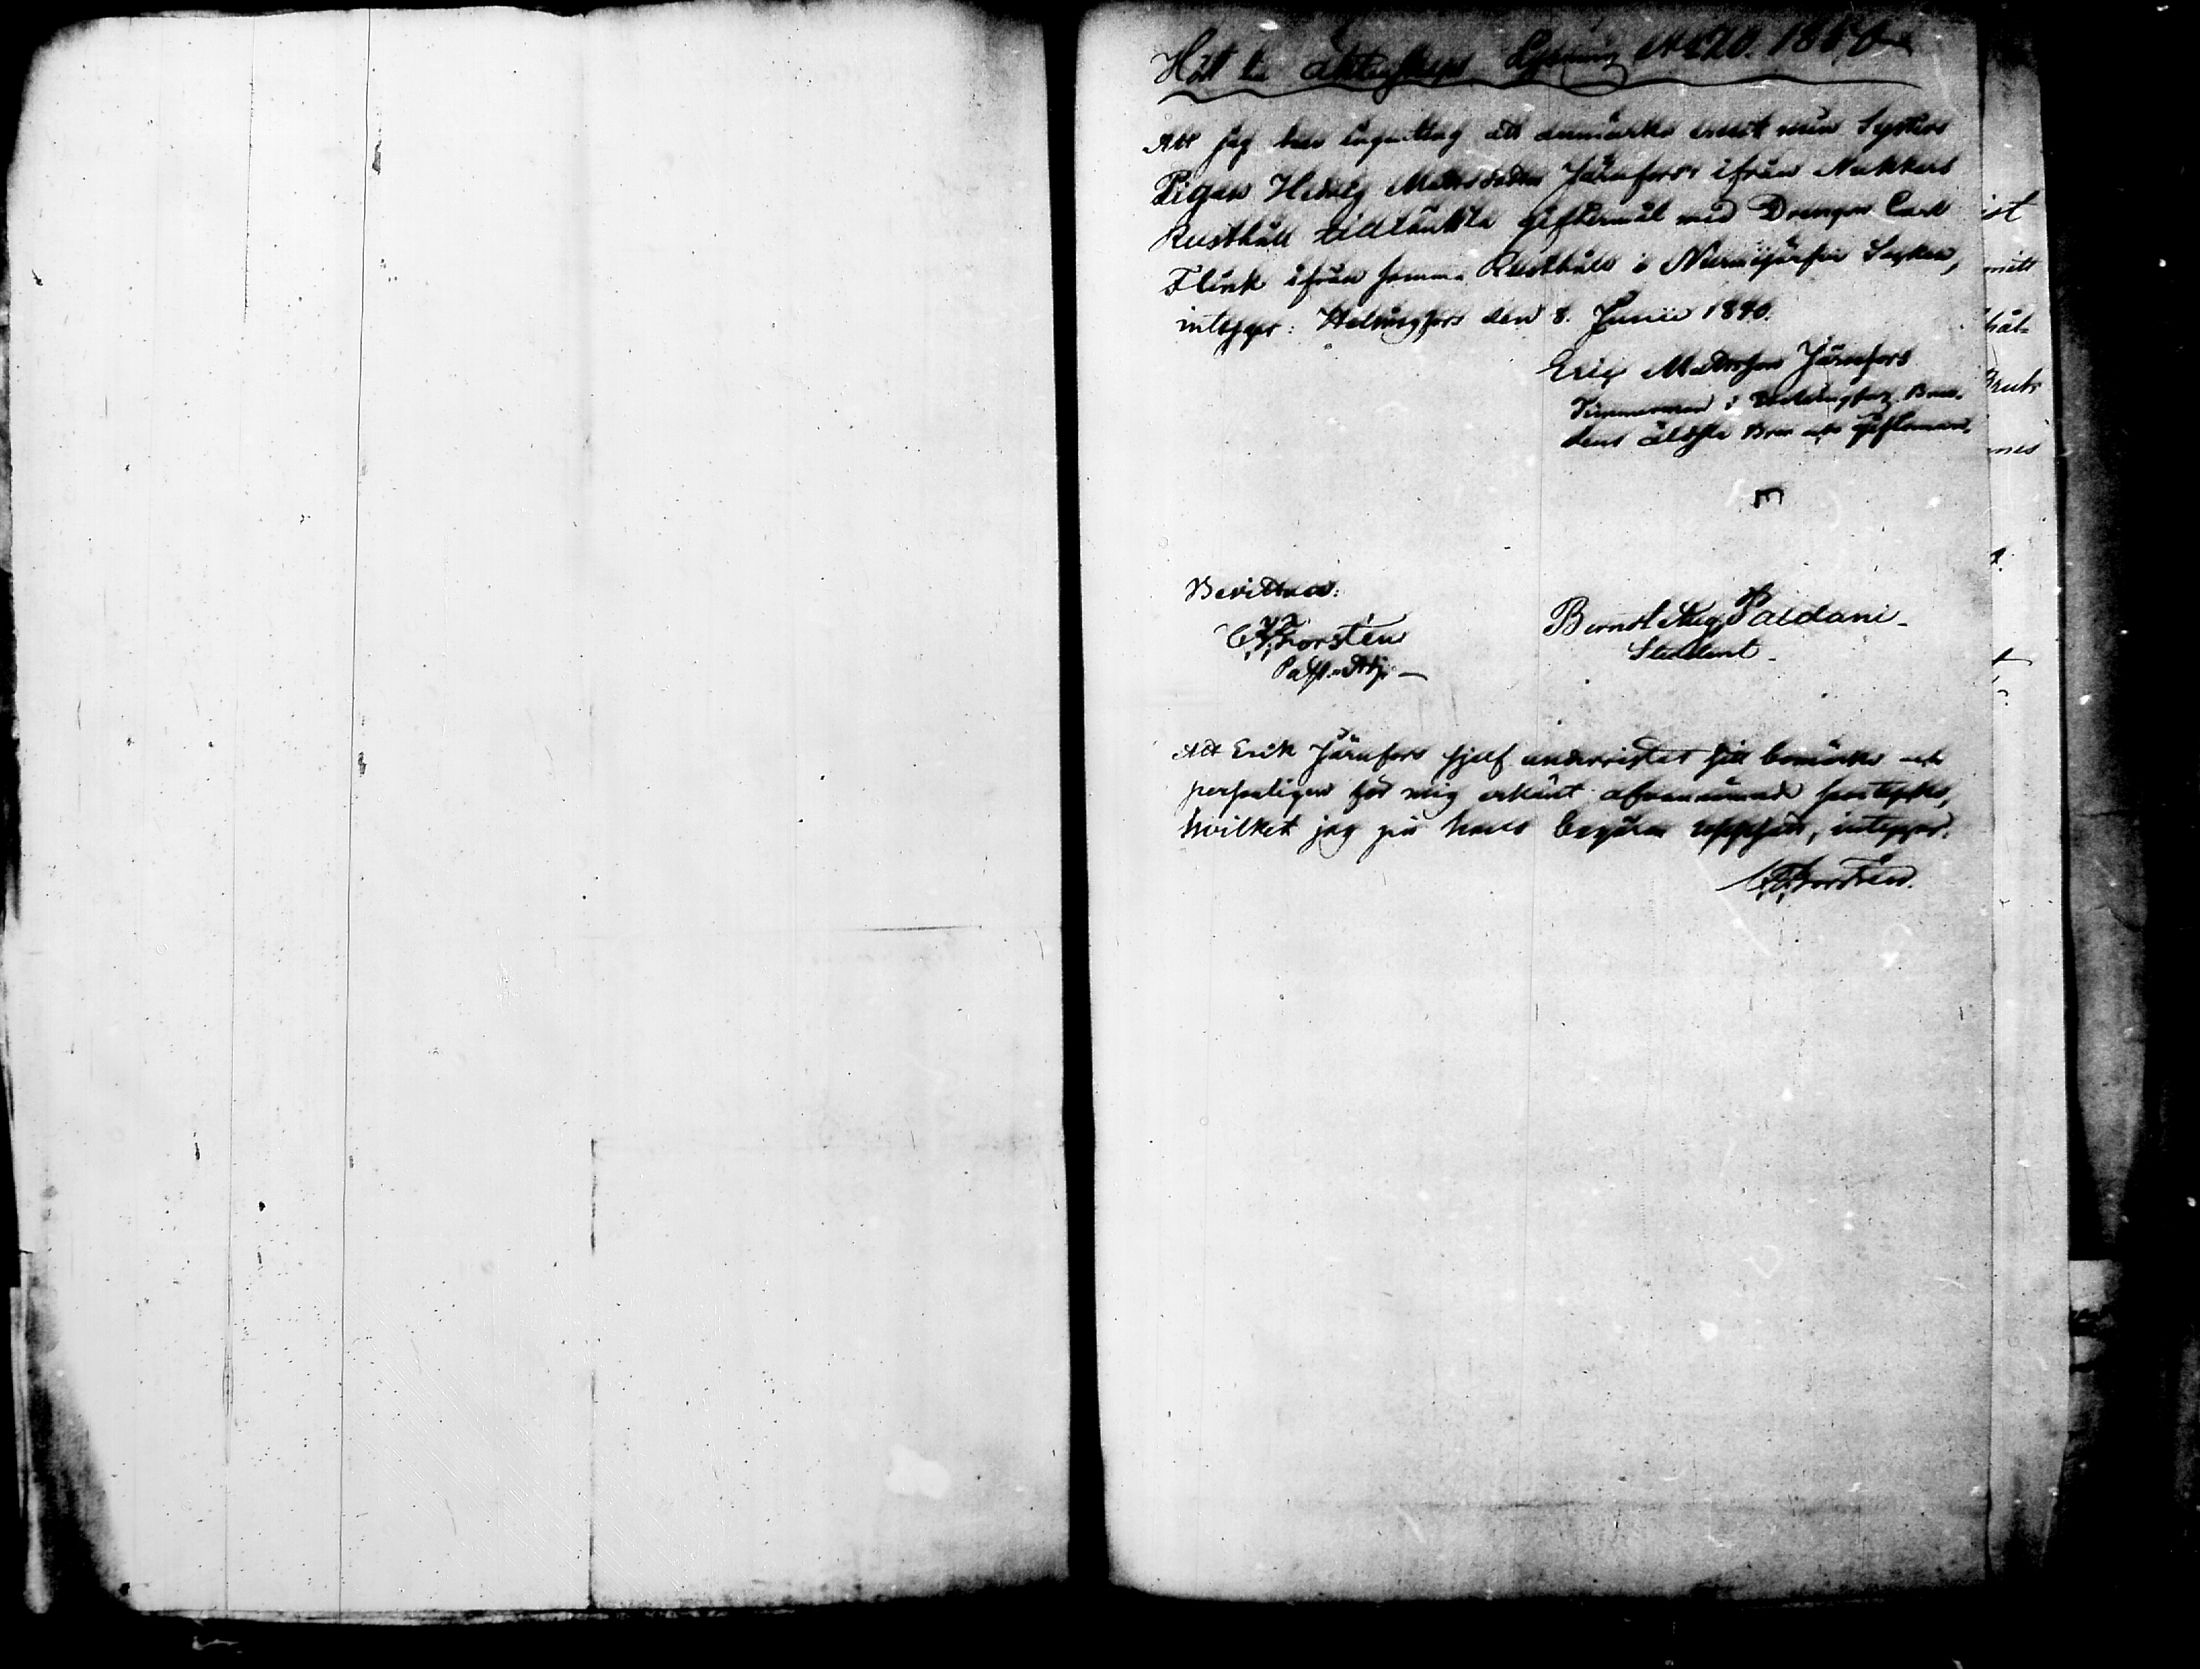 Hör till äktenskaps Lysning No 20. 1840
Att jag har ingenting att anmärka emot min Systers
Pigan Hedvig Mattsdotter Järnfors ifrån Nukkars
Rusthåll tilltänkta giftermål med Drengen Carl
Flink ifrån samma Rusthåll i Nurmijärvi Socken,
intygar: Helsingfors den 8. Junii 1840.
Eric Mattsson Järnfors
Timmerman i Helsingfors, Bru-
dens äldsta Bror och giftoman.
Bevittna:
Forstén
Past. Adj.
Berndt Aug. Paldani
Student.
Att Erik Järnfors sjelf underritat sitt bomärke och
personligen för mig erkänt ofvannämnde samtycke,
hvilket jag på hans begäran uppsatt, intygar.
Forstén.
ist
mitt
hål-
Bruk
nes